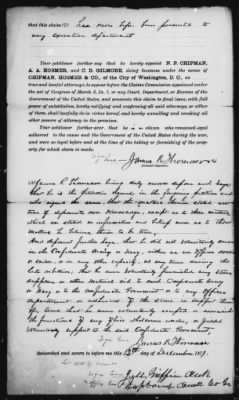 that this claim has never before been presented to
any executive department
Your petitioner further says that he hereby appoints N. P. CHIPMAN,
A. A. HOSMER, and C. D. GILMORE, doing business under the name of
CHIPMAN, HOSMER & CO., of the City of Washington, D. C., as
true and lawful attorneys, to appear before the Claims Commission appointed under
the act of Congress of March 3, 1871, or any Court, Department, or Bureau of the
Government of the United States, and prosecute this claim to final issue, with full
power of substitution, hereby ratifying and confirming all said attorneys, or either of
them, shall lawfully do in virtue hereof, and hereby annulling and revoking all other
powers of attorney in the premises.
Your petitioner further says, that he is a citizen who remained loyal
adherent to the cause and the Government of the United States during the war,
and were so loyal before and at the time of the taking or furnishing of the prop-
erty for which claim is made.
James R. Thomason
James R. Thomason being duly sworn deposes and says
that he is the petitioner named in the foregoing petition and
who signed the same; that the
of deponents own knowledge, except as to those matters
which are stated on information and belief and as to those
matters he believes them to be true;
And deponent further says, that he did not voluntarily serve
in the Confederate Army or Navy, either as an officer, soldier
or sailor, or in any other capacity, at any time during the
late rebellion; that he never voluntarily furnished any stores
supplies, or other material aid to said Confederate Army
or Navy, or to the Confederate Government, or to any officer
department, or adherent of the same in support there
of, and that he never voluntarily accepted or exercised
the functions of any office whatsoever under, or yielded
voluntary support to the said Confederate Government.
James R. Thomason
Subscribed and sworn to before me this
of December 1871.
Clerk